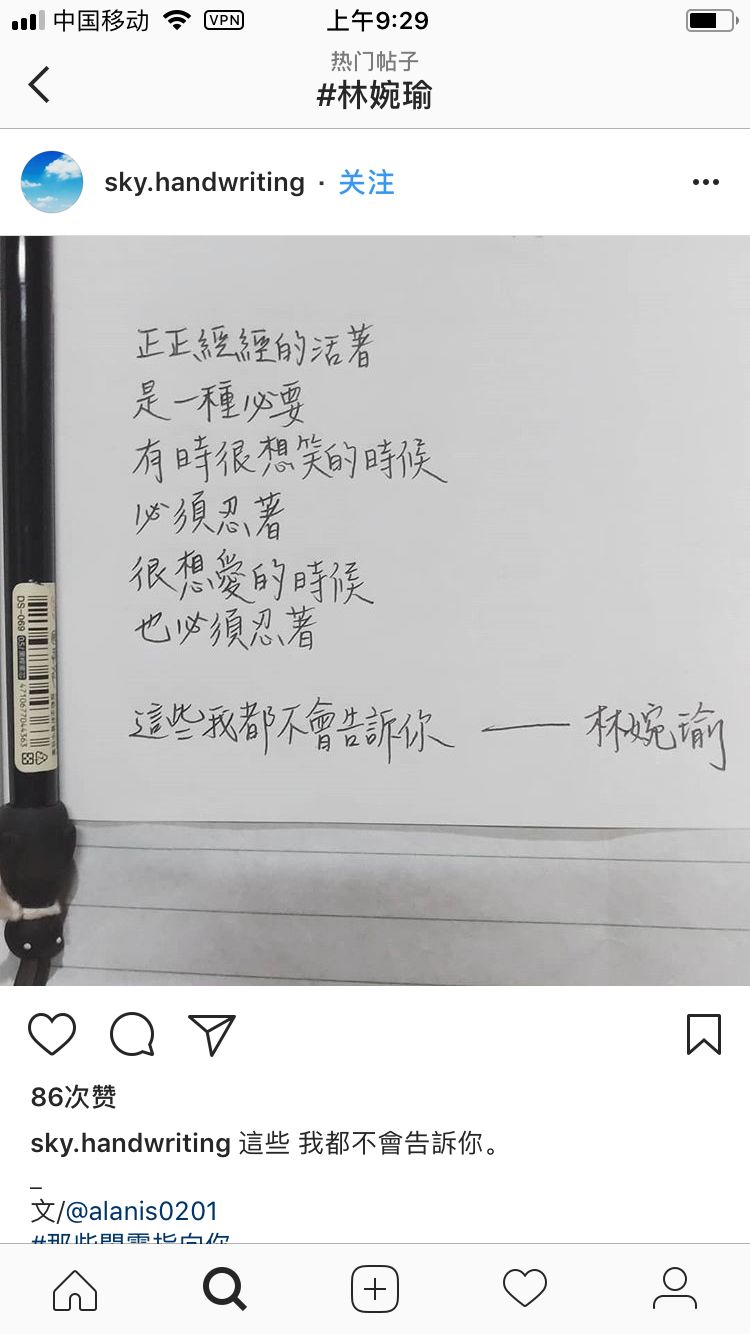 中国移动 VPN 上午9:29
热门帖子
#林婉瑜
sky.handwriting · 关注
正正經經的活著
是一種必要
有時很想笑的時候
必須忍著
很想愛的時候
也必須忍著
這些我都不會告訴你 —— 林婉瑜
DS-069
4710677044363
86次赞
sky.handwriting 這些 我都不會告訴你。
_
文/@alanis0201
#那些閃電指向你